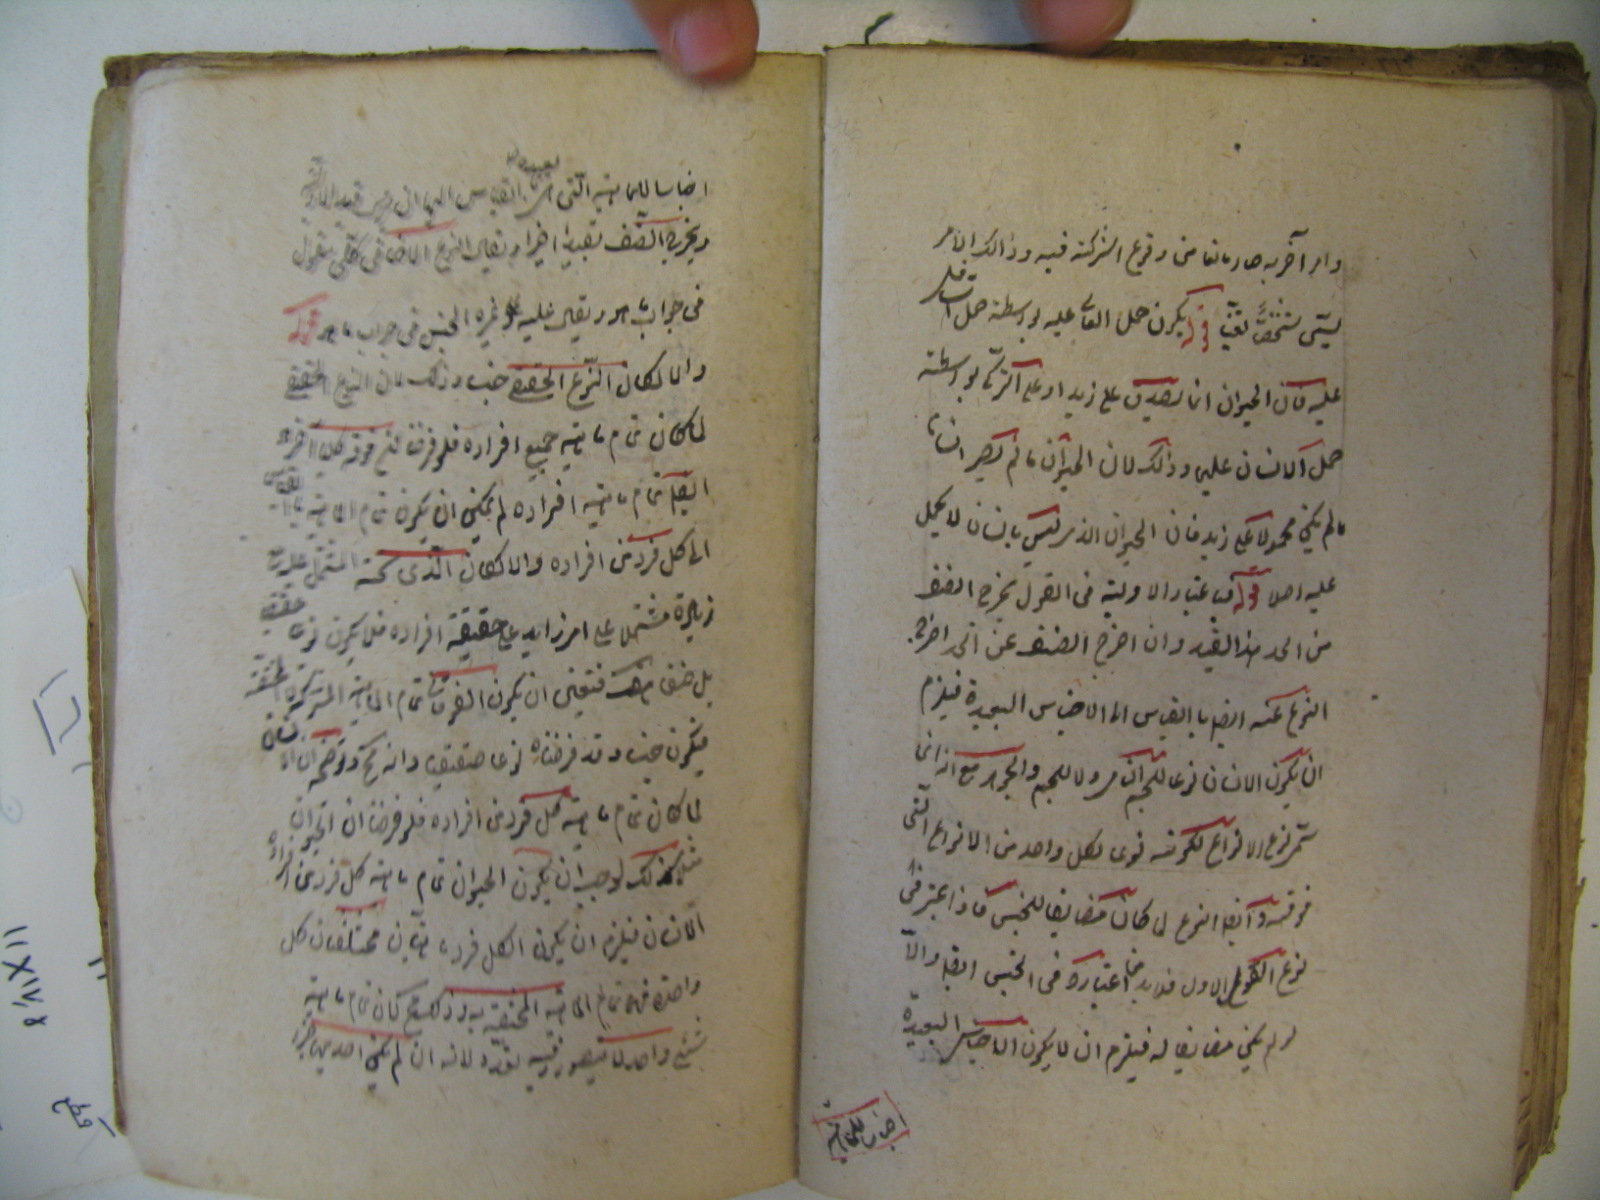 وامر آخر به صار مانعا من وقوع الشركة فيه وذالك الامر
يسمى تشخصا وتعينا قوله يكون حمل العالى عليه بواسطة حمل السافل
عليه فان الحيوان انما يصدق على زيد او على التركى بواسطة
حمل الانسان عليه وذالك لان الحيوان ما لم يصر انسانا
لم يكن محمولا على زيد فان الحيوان الذى ليس بانسان لا يحمل
عليه اصلا قوله فباعتبار الاولية فى القول يخرج الصنف
من الحد هذا القيد وان اخرج الصنف عن الحد اخرج
النوع عنه ايضا بالقياس الى الاجناس البعيدة فيلزم
ان يكون الانسان نوعا للحيوان ولا للجسم والجوهر مع انه انما
سمى نوع الانواع لكونه نوعا لكل واحد من الانواع التى
فوقه وايضا النوع لما كان مضايفا للجنس فاذا اعتبر فى
نوع النوع الاول فلا بد من اعتباره فى الجنس ايضا والا
لم يكن مضايفا له فيلزم ان لا يكون الاجناس البعيدة
اجناسا للماهية
اجناسا للماهية التى هى بعيدة بالقياس اليها
ويخرج الصنف بقيد اخر او يقال النوع الاضافى كلى مقول
فى جواب ما هو ويقال عليه وعلى غيره الجنس فى جواب ما هو قوله
والا لكان النوع الحقيقى جنسا وذلك لان النوع الحقيقى
لما كان تمام ماهية جميع افراده فلو فرضنا نوع فوقه كان
ايضا تمام ماهية افراده لم يمكن ان يكون تمام الماهية بالقياس
الى كل فرد من افراده والا لكان الذى تحته المشتمل على
زيادة مشتملا على امر زايد على حقيقة افراده فلا يكون نوعا حقيقيا
بل صنفا فتعين ان يكون الفوقانى تمام الماهية المشتركة
فيكون جنسا وقد فرضناه نوعا حقيقيا وانه مح وتوضحه ان
لما كان تمام ماهية كل فرد من افراده فلو فرضنا ان الحيوان
مثلا كذلك لوجب ان يكون الحيوان تمام ماهية كل فرد من افراد
الانسان فيلزم ان يكون لكل فرد ماهيتان مختلفتان كل
واحدة منهما تمام الماهية المختصة به وذلك مح كان تمام ماهية
شىء واحد لا يتصور فيه تعدد لانه ان لم يكن احديهما